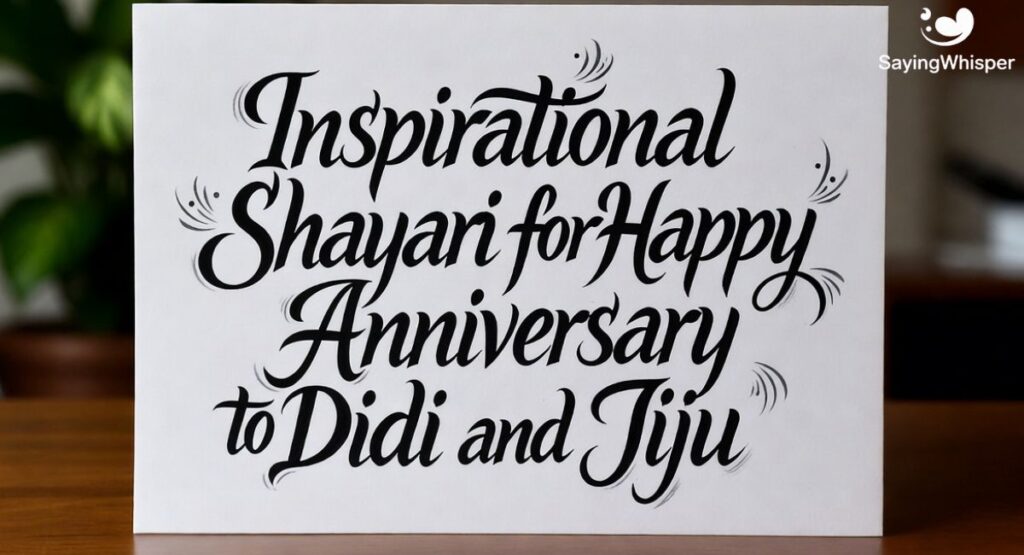 SayingWhisper
Inspirational
Shayari for Happy
Anniversary
to Didi and Jiju